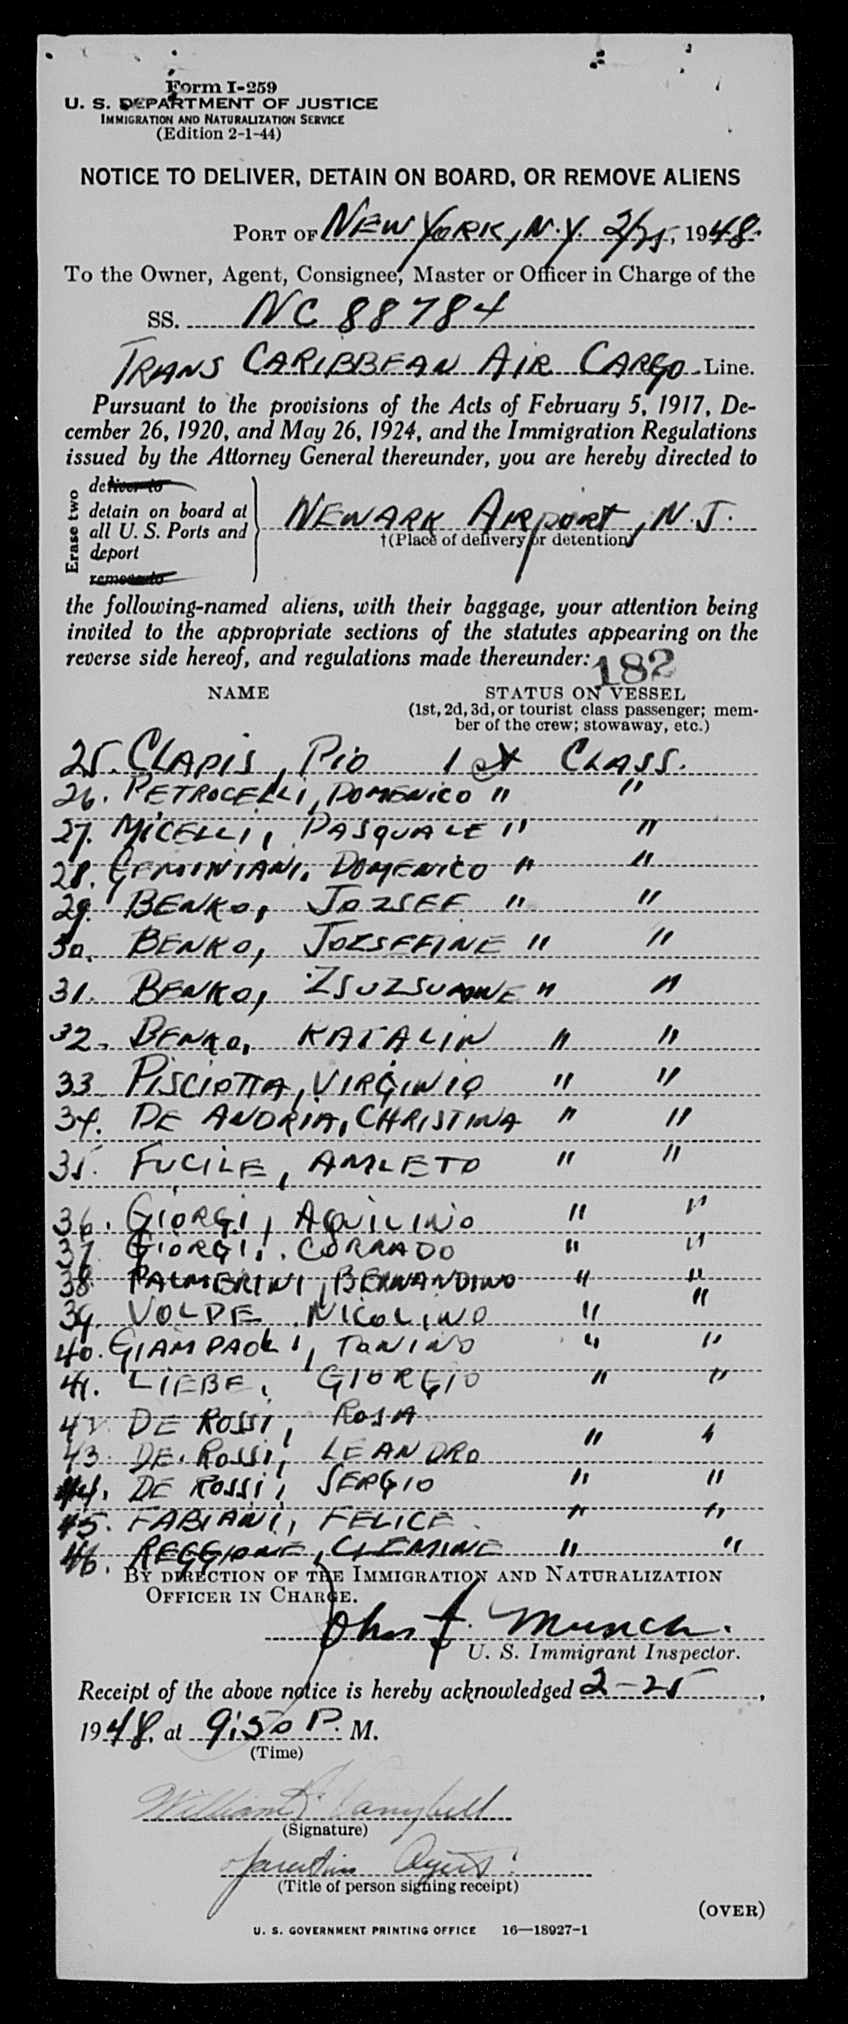 Form I-259
U. S. DEPARTMENT OF JUSTICE
IMMIGRATION AND NATURALIZATION SERVICE
(Edition 2-1-44)
NOTICE TO DELIVER, DETAIN ON BOARD, OR REMOVE ALIENS
PORT OF NEW YORK, N.Y. 2/25, 1948.
To the Owner, Agent, Consignee, Master or Officer in Charge of the
SS. NC 88784
TRANS CARIBBEAN AIR CARGO Line.
Pursuant to the provisions of the Acts of February 5, 1917, De-
cember 26, 1920, and May 26, 1924, and the Immigration Regulations
issued by the Attorney General thereunder, you are hereby directed to
Erase two
deliver to
detain on board at
all U. S. Ports and
deport
remove to
NEWARK AIRPORT, N.J.
†(Place of delivery or detention)
the following-named aliens, with their baggage, your attention being
invited to the appropriate sections of the statutes appearing on the
reverse side hereof, and regulations made thereunder:
182
NAME STATUS ON VESSEL
(1st, 2d, 3d, or tourist class passenger; mem-
ber of the crew; stowaway, etc.)
25. CLAPIS, PIO 1st CLASS.
26. PETROCELLI, DOMENICO " "
27. MICELLI, PASQUALE " "
28. GEMINIANI, DOMENICO " "
29. BENKO, JOZSEF " "
30. BENKO, JOZSEFINE " "
31. BENKO, ZSUZSUANNE " "
32. BENKO, KATALIN " "
33 PISCIOTTA, VIRGINIO " "
34. DE ANDRIA, CHRISTINA " "
35. FUCILE, AMLETO " "
36. GIORGI, AQUILINO " "
37 GIORGI, CORRADO " "
38 PALMERINI, BERNANDINO " "
39. VOLPE NICOLINO " "
40. GIAMPAOLI, TONINO " "
41. LIEBE, GIORGIO " "
42 DE ROSSI, ROSA
43. DE ROSSI, LEANDRO " "
44. DE ROSSI, SERGIO " "
45. FABIANI, FELICE " "
46. REGGIONE, CLEMINE " "
BY DIRECTION OF THE IMMIGRATION AND NATURALIZATION
OFFICER IN CHARGE.
John J. Munch.
U. S. Immigrant Inspector.
Receipt of the above notice is hereby acknowledged 2-25,
1948, at 9:50 P. M.
(Time)
William Campbell
(Signature)
(Title of person signing receipt)
(OVER)
U. S. GOVERNMENT PRINTING OFFICE 16—18927-1